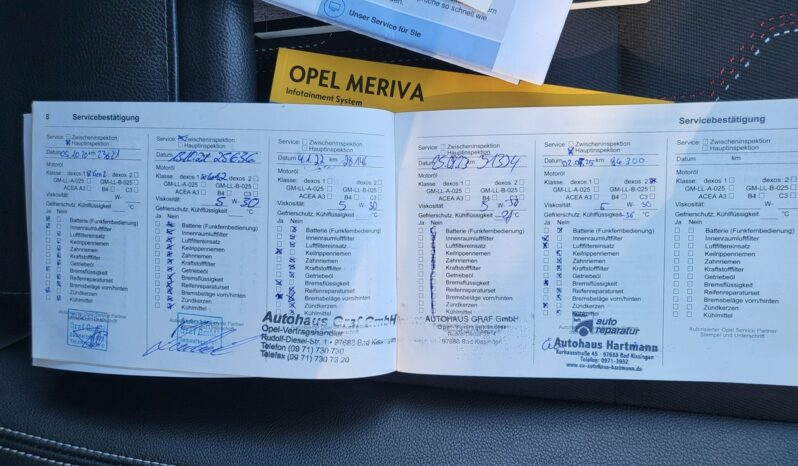 Unser Service für Sie
OPEL MERIVA
Infotainment System
8 Servicebestätigung
Service: Zwischeninspektion
Hauptinspektion
Datum 05.10.20 km
Motoröl
Klasse: dexos 1 dexos 2
GM-LL-A-025 GM-LL-B-025
ACEA A3 B4 C3
Viskosität W-
Gefrierschutz, Kühlflüssigkeit °C
Ja Nein
Batterie (Funkfernbedienung)
Innenraumluftfilter
Luftfiltereinsatz
Keilrippenriemen
Zahnriemen
Kraftstofffilter
Getriebeöl
Bremsflüssigkeit
Reifenreparaturset
Bremsbeläge vorn/hinten
Zündkerzen
Kühlmittel
Service: Zwischeninspektion
Hauptinspektion
Datum km 25636
Motoröl
Klasse: dexos 1 dexos 2
GM-LL-A-025 GM-LL-B-025
ACEA A3 B4 C3
Viskosität 5 W-30
Gefrierschutz, Kühlflüssigkeit °C
Ja Nein
Batterie (Funkfernbedienung)
Innenraumluftfilter
Luftfiltereinsatz
Keilrippenriemen
Zahnriemen
Kraftstofffilter
Getriebeöl
Bremsflüssigkeit
Reifenreparaturset
Bremsbeläge vorn/hinten
Zündkerzen
Kühlmittel
Service: Zwischeninspektion
Hauptinspektion
Datum km 28146
Motoröl
Klasse: dexos 1 dexos 2
GM-LL-A-025 GM-LL-B-025
ACEA A3 B4 C3
Viskosität 5 W-30
Gefrierschutz, Kühlflüssigkeit °C
Ja Nein
Batterie (Funkfernbedienung)
Innenraumluftfilter
Luftfiltereinsatz
Keilrippenriemen
Zahnriemen
Kraftstofffilter
Getriebeöl
Bremsflüssigkeit
Reifenreparaturset
Bremsbeläge vorn/hinten
Zündkerzen
Kühlmittel
Autohaus Graf GmbH
Opel-Vertragshändler
Rudolf-Diesel-Str. 1 • 97688 Bad Kissingen
Telefon (09 71) 730 730
Telefax (09 71) 730 73 20
Servicebestätigung
Service: Zwischeninspektion
Hauptinspektion
Datum km 31324
Motoröl
Klasse: dexos 1 dexos 2
GM-LL-A-025 GM-LL-B-025
ACEA A3 B4 C3
Viskosität 5 W-30
Gefrierschutz, Kühlflüssigkeit °C
Ja Nein
Batterie (Funkfernbedienung)
Innenraumluftfilter
Luftfiltereinsatz
Keilrippenriemen
Zahnriemen
Kraftstofffilter
Getriebeöl
Bremsflüssigkeit
Reifenreparaturset
Bremsbeläge vorn/hinten
Zündkerzen
Kühlmittel
AUTOHAUS GRAF GmbH
97688 Bad Kissingen
Service: Zwischeninspektion
Hauptinspektion
Datum km
Motoröl
Klasse: dexos 1 dexos 2
GM-LL-A-025 GM-LL-B-025
ACEA A3 B4 C3
Viskosität 5 W-30
Gefrierschutz, Kühlflüssigkeit -36 °C
Ja Nein
Batterie (Funkfernbedienung)
Innenraumluftfilter
Luftfiltereinsatz
Keilrippenriemen
Zahnriemen
Kraftstofffilter
Getriebeöl
Bremsflüssigkeit
Reifenreparaturset
Bremsbeläge vorn/hinten
Zündkerzen
Kühlmittel
auto
reparatur
Autohaus Hartmann
Kurhausstraße 45 • 97688 Bad Kissingen
Telefon: 0971-3952
www.eu-autohaus-hartmann.de
Service: Zwischeninspektion
Hauptinspektion
Datum km
Motoröl
Klasse: dexos 1 dexos 2
GM-LL-A-025 GM-LL-B-025
ACEA A3 B4 C3
Viskosität W-
Gefrierschutz, Kühlflüssigkeit °C
Ja Nein
Batterie (Funkfernbedienung)
Innenraumluftfilter
Luftfiltereinsatz
Keilrippenriemen
Zahnriemen
Kraftstofffilter
Getriebeöl
Bremsflüssigkeit
Reifenreparaturset
Bremsbeläge vorn/hinten
Zündkerzen
Kühlmittel
Autorisierter Opel Service Partner
Stempel und Unterschrift